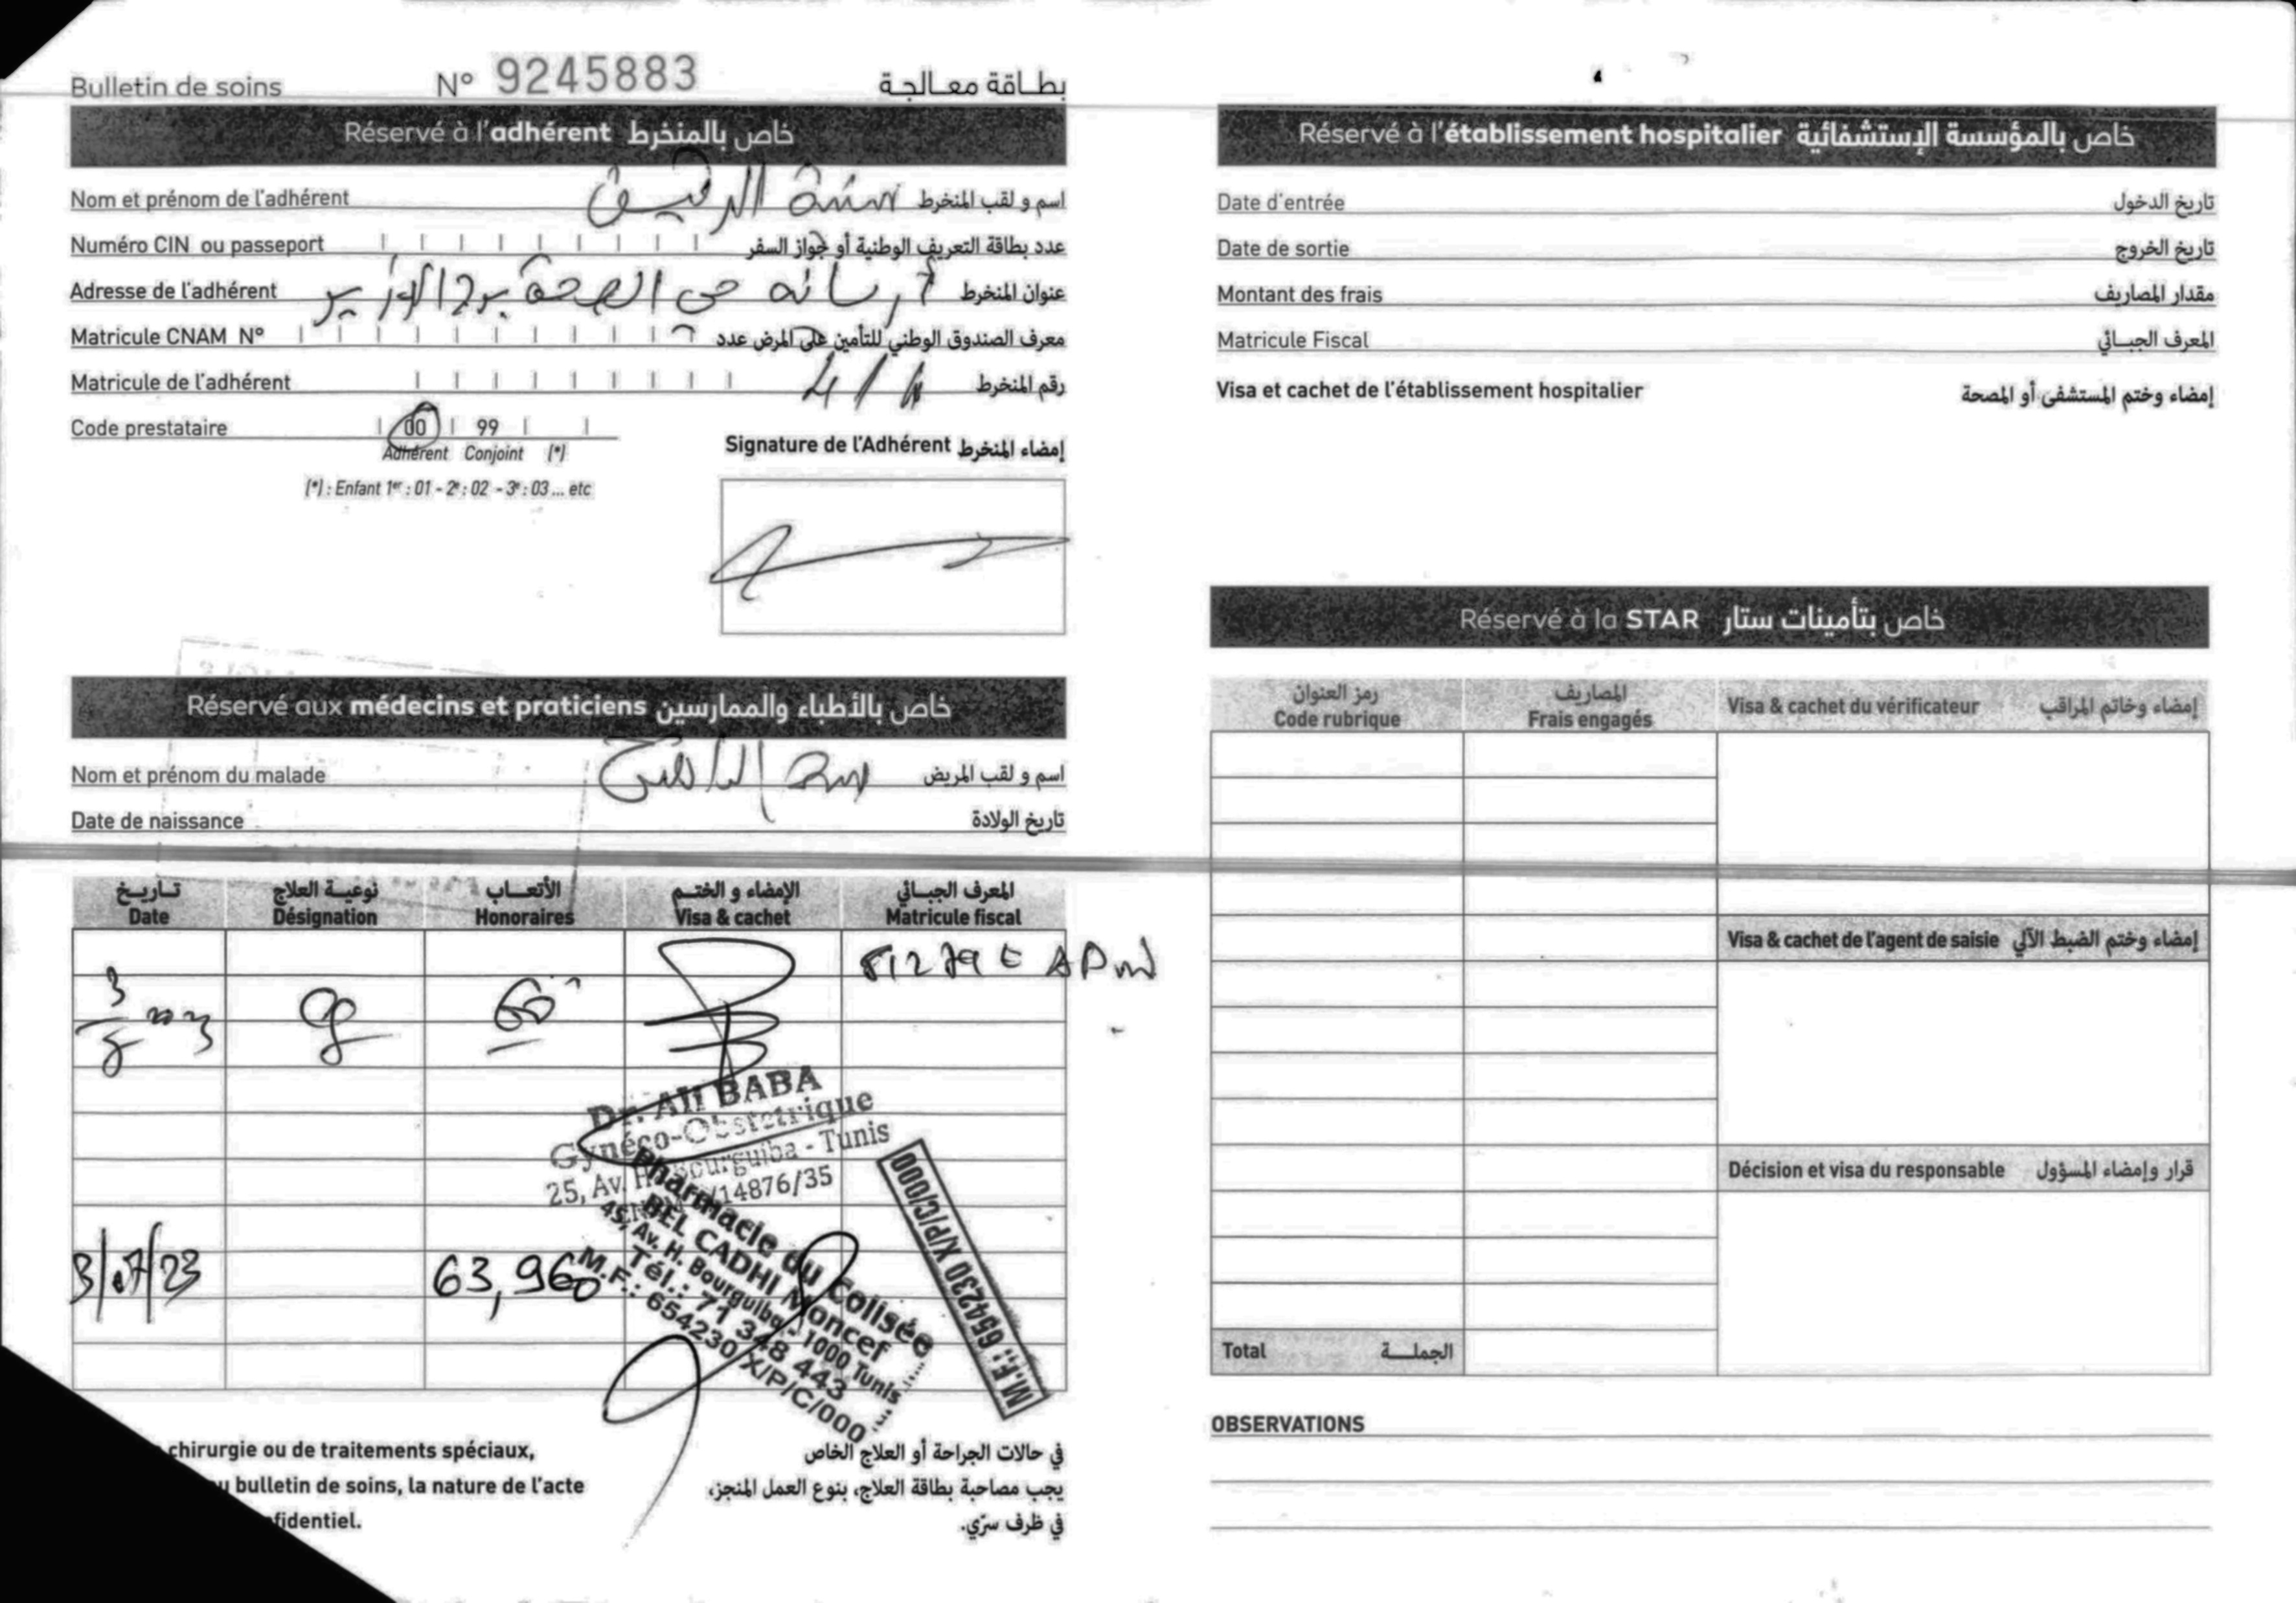 Bulletin de soins N° 9245883 بطاقة معالجة
Réservé à l'adhérent خاص بالمنخرط
Nom et prénom de l'adhérent اسم و لقب المنخرط
Numéro CIN ou passeport عدد بطاقة التعريف الوطنية أو جواز السفر
Adresse de l'adhérent حي الصحة برج الوزير عنوان المنخرط
Matricule CNAM N° معرف الصندوق الوطني للتأمين على المرض عدد
Matricule de l'adhérent رقم المنخرط
Code prestataire 00 99
Adhérent Conjoint (*)
(*) : Enfant 1er : 01 - 2e : 02 - 3e : 03 ... etc
Signature de l'Adhérent إمضاء المنخرط
Réservé aux médecins et praticiens خاص بالأطباء والممارسين
Nom et prénom du malade اسم و لقب المريض
Date de naissance تاريخ الولادة
تاريخ نوعية العلاج الأتعاب الإمضاء و الختم المعرف الجبائي
Date Désignation Honoraires Visa & cachet Matricule fiscal
Dr. Ali BABA
Gynéco-Obstétrique
25, Av. H. Bourguiba - Tunis
/14876/35
3/07/23 63,960
Pharmacie du Colisée
BEL CADHI Moncef
45, Av. H. Bourguiba - 1000 Tunis
Tél.: 71 348 443
M.F.: 654230/X/P/C/000
M.F.: 654230 X/P/C/000
chirurgie ou de traitements spéciaux,
bulletin de soins, la nature de l'acte
في حالات الجراحة أو العلاج الخاص
يجب مصاحبة بطاقة العلاج، بنوع العمل المنجز،
في ظرف سرّي.
Réservé à l'établissement hospitalier خاص بالمؤسسة الإستشفائية
Date d'entrée تاريخ الدخول
Date de sortie تاريخ الخروج
Montant des frais مقدار المصاريف
Matricule Fiscal المعرف الجبائي
Visa et cachet de l'établissement hospitalier إمضاء وختم المستشفى أو المصحة
Réservé à la STAR خاص بتأمينات ستار
رمز العنوان المصاريف
Code rubrique Frais engagés Visa & cachet du vérificateur إمضاء وخاتم المراقب
Visa & cachet de l'agent de saisie إمضاء وختم الضبط الآلي
Décision et visa du responsable قرار وإمضاء المسؤول
Total الجملة
OBSERVATIONS